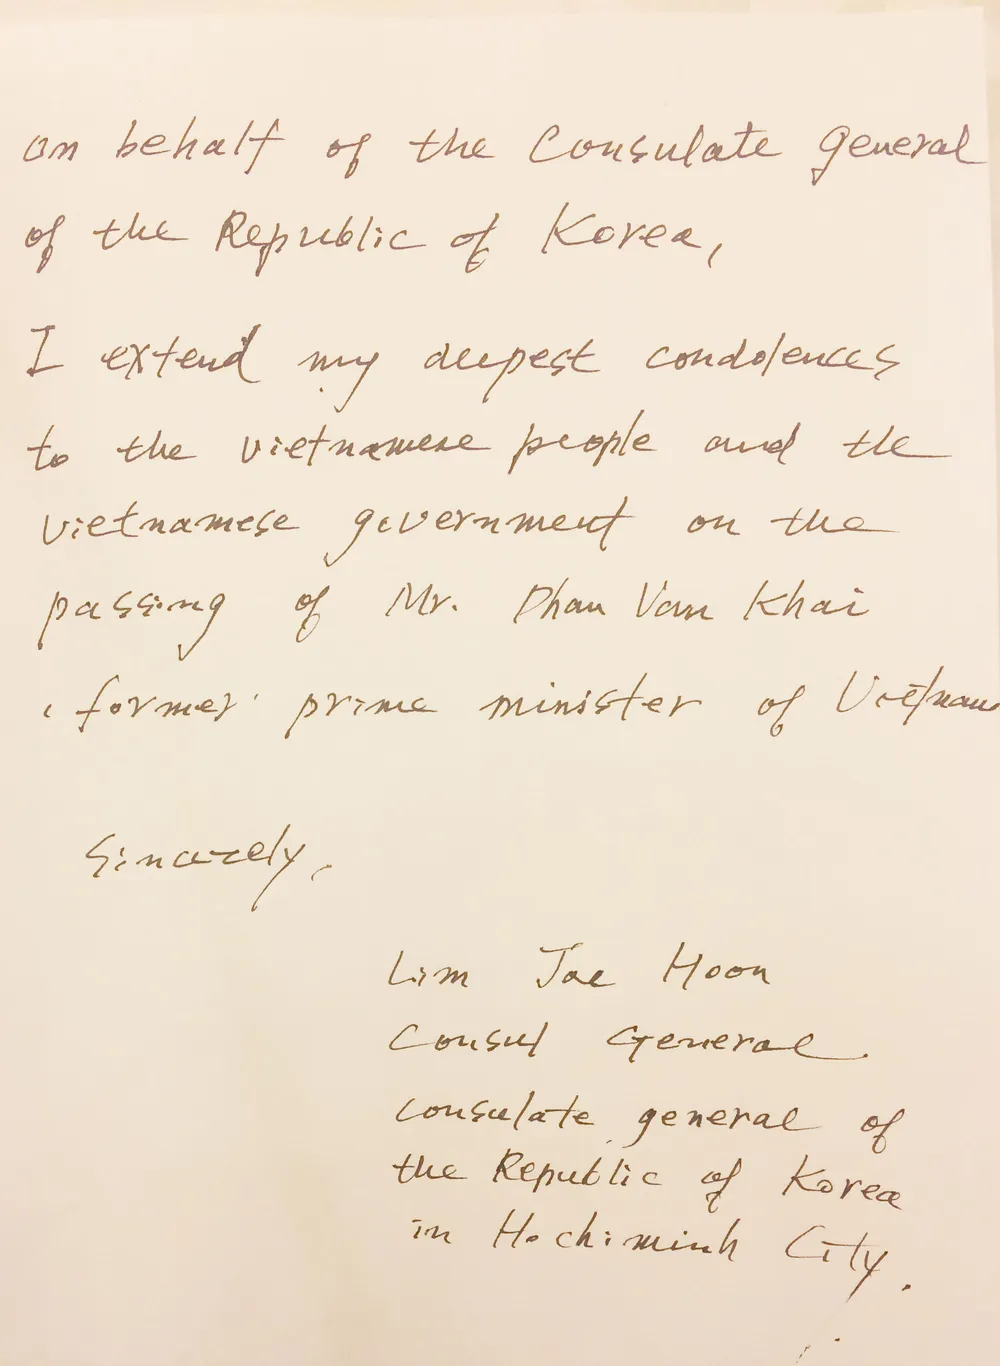 on behalf of the Consulate General
of the Republic of Korea,
I extend my deepest condolences
to the vietnamese people and the
vietnamese government on the
passing of Mr. Phan Van Khai
, former prime minister of Vietnam
Sincerely,
Lim Jae Hoon
Consul General.
consulate general of
the Republic of Korea
in Hochiminh City.